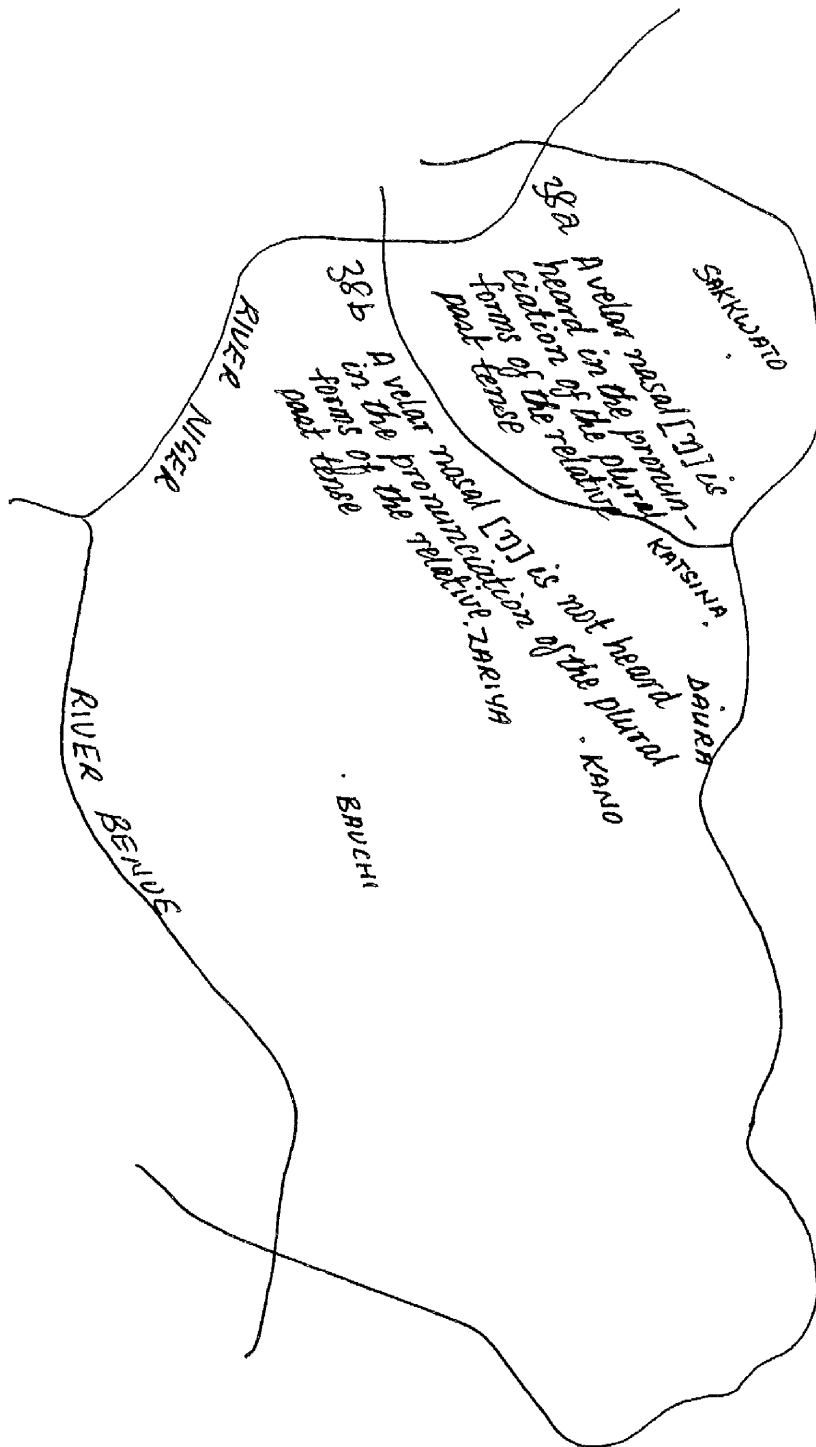 SAKKWATO
38a A velar nasal [ŋ] is
heard in the pronun-
ciation of the plural
forms of the relative
past tense
KATSINA
DAURA
38b A velar nasal [ŋ] is not heard
in the pronunciation of the plural
forms of the relative
past tense
ZARIYA
KANO
BAUCHI
RIVER NIGER
RIVER BENUE